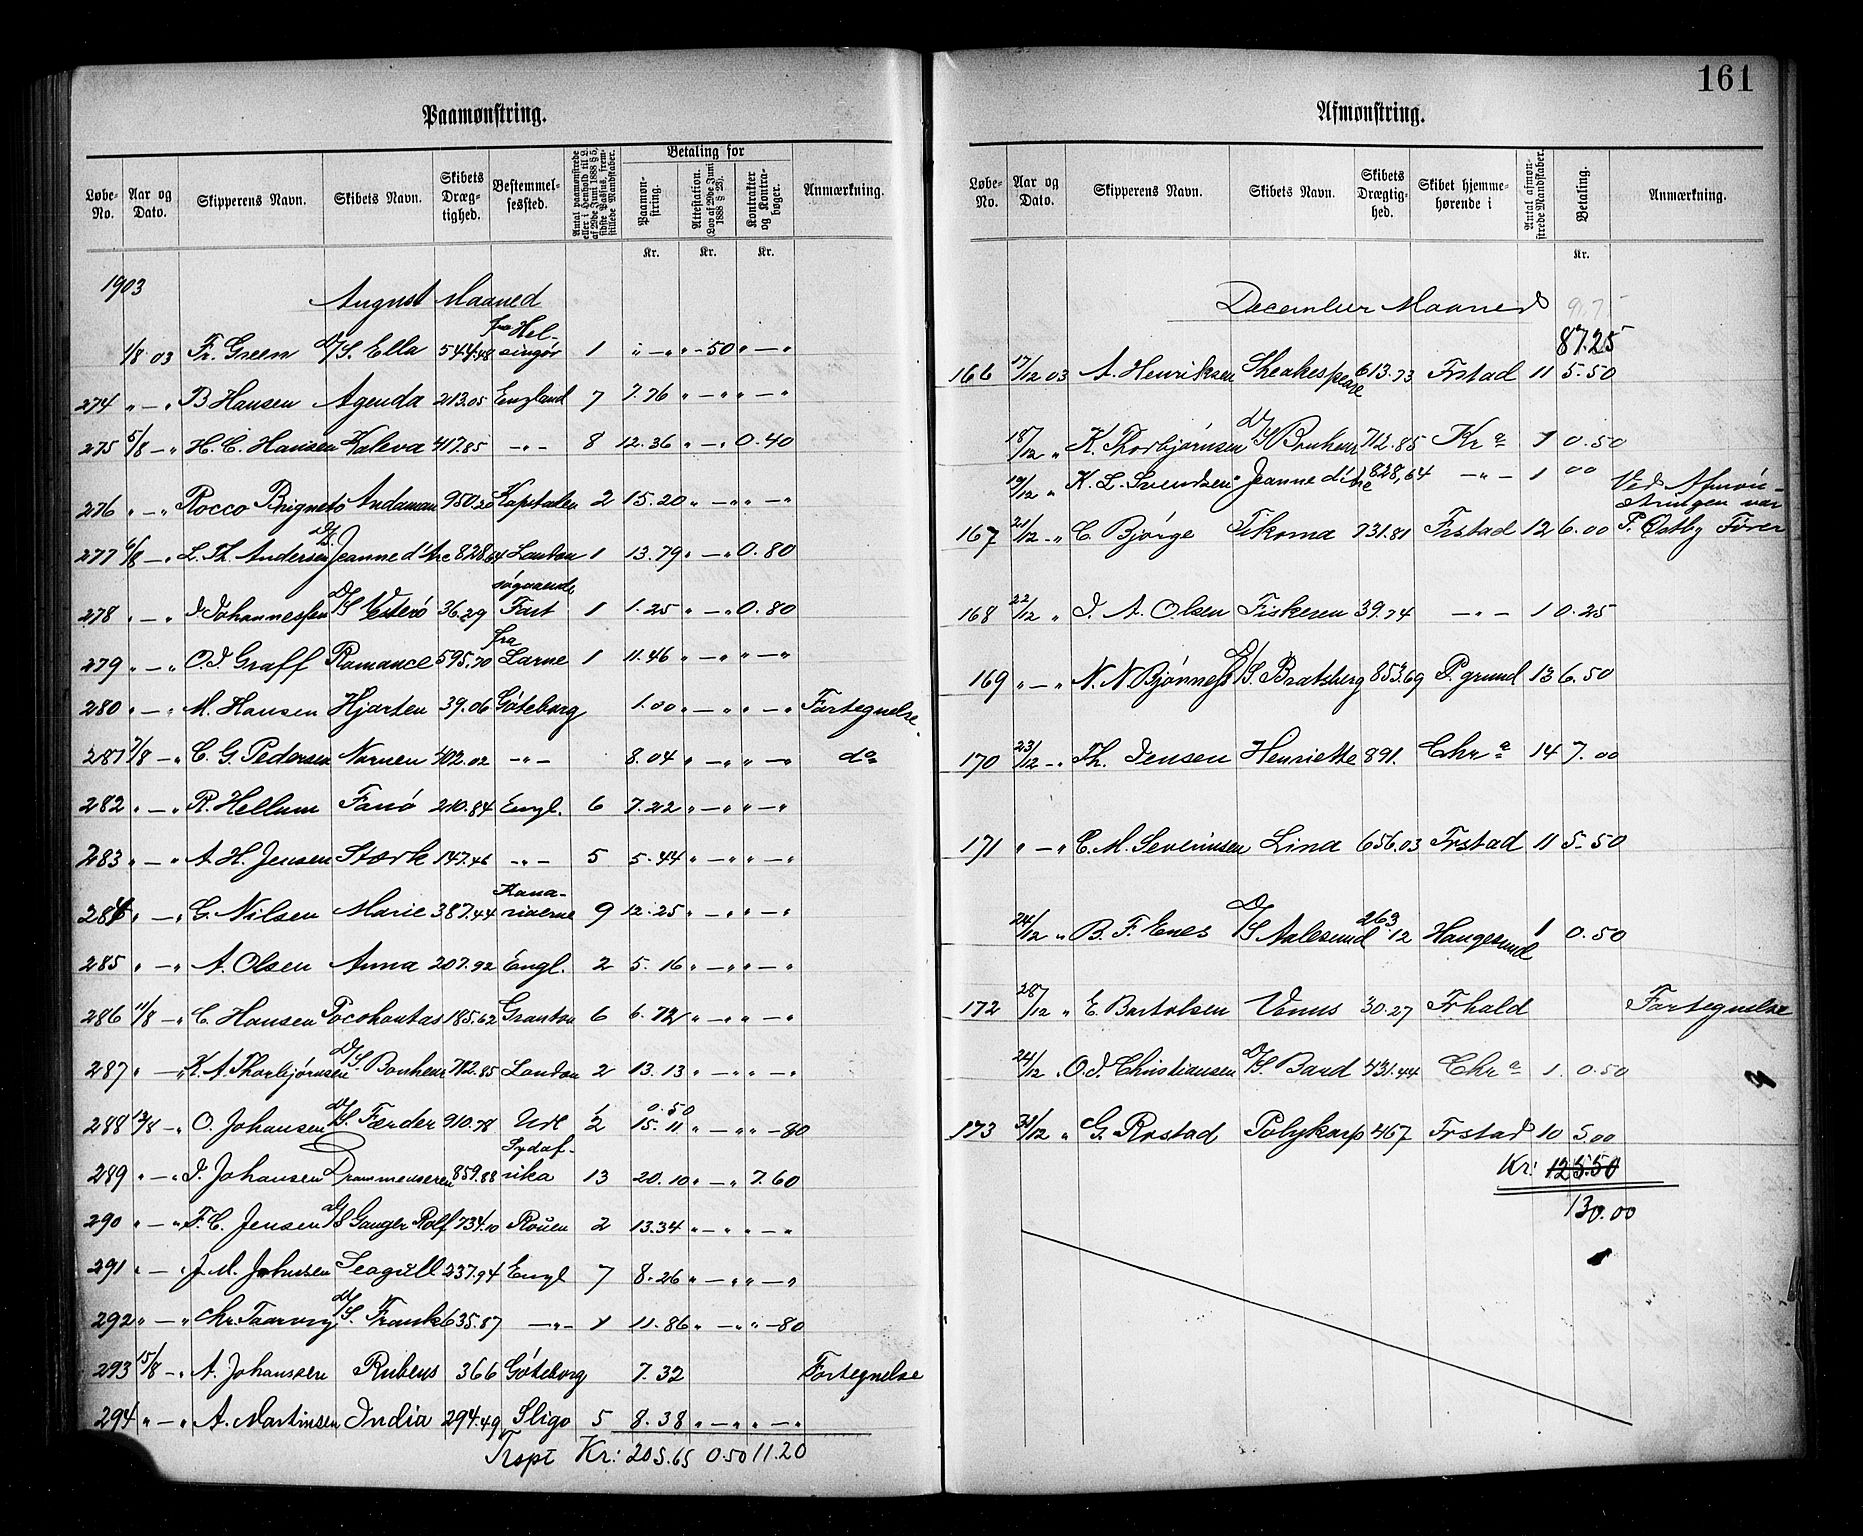 Paamønstring.
Løbe-No. Aar og Dato. Skipperens Navn. Skibets Navn. Skibets Dræg-tighed. Bestemmel-sessted. Betaling for Paamøn-string. Attestation. (Lov af 29de Juni 1888 § 25). Kontrakter og Kontra-bøger. Anmærkning.
Kr. Kr. Kr.
1903
August Maaned
1/8 03 Fr. Green D/S. Ella 544.48 fra Hel-singör 1 " — " - 50 " — "
274 " — " B Hansen Agenda 213.05 England 7 7.76 " — " " — "
275 5/8 — " H. C. Hansen Kaleva 417.85 — " — 8 12.36 " — " 0.40
276 " — " Rocco Brigneto Andaman 950.26 Kapstaden 2 15.20 " — " " — "
277 6/8 — " L. Th. Andersen D/S. Jeanne d'Arc 828.64 London 1 13.79 " — " 0.80
278 " — " J. Johannessen D/S Vesterö 36.29 søgaaende Fart 1 1.25 " — " 0.80
279 " — " O. J. Graff Romance 595.70 fra Larne 1 11.46 " — " " — "
280 " — " M. Hansen Hjorten 39.06 Göteborg 1.00 " — " " — " Fortegnelse
281 7/8 — " C. G. Pedersen Nornen 402.02 — " — 8.04 " — " " — " do
282 " — " R. Hellum Fanö 210.84 Engl. 6 7.22 " — " " — "
283 " — " A. H. Jensen Stærk 147.46 — " — 5 5.44 " — " " — "
284 " — " G. Nilsen Marie 387.44 Kana-riøerne 9 12.25 " — " " — "
285 " — " A. Olsen Anna 207.92 Engl. 2 5.16 " — " " — "
286 11/8 — " C. Hansen Pocohontas 185.62 Granton 6 6.72 " — " " — "
287 " — " K. A. Thorbjørnsen D/S. Bonheur 712.85 London 2 13.13 " — " " — "
288 13/8 — " O. Johansen D/S. Færder 910.78 Hull 1/2 0.50 15.11 " — " " - 80
289 " — " J. Johansen Drammenseren 859.88 Sydaf-rika 13 20.10 " — " 7.60
290 " — " F. C. Jensen D/S Ganger Rolf 734.10 Rouen 2 13.34 " — " " — "
291 " — " J. M. Johnsen Seagull 237.94 Engl 7 8.26 " — " " — "
292 " — " Chr. Taarvig D/S. Frank 635.87 — " — 1 11.86 " — " " - 80
293 15/8 — " A. Johansen Rubens 366 Göteborg 7.32 Fortegnelse
294 " — " A. Martinsen India 294.49 Sligo 5 8.38 " — " " — "
Trspt Kr: 205.65 0.50 11.20
161
Afmønstring.
Løbe-No. Aar og Dato. Skipperens Navn. Skibets Navn. Skibets Drægtig-hed. Skibet hjemme-hørende i Antal afmøn-strede Mandskaber. Betaling. Anmærkning.
Kr.
December Maaned
87.25
166 17/12 03 A. Henriksen Sheakespeare 613.73 Frstad 11 5.50
18/12 " K. Thorbjørnsen D/S Bonheur 712.85 Kra 1 0.50
19/12 " K. L. Svendsen " Jeanne d'Arc 828,64 — " — 1 00
167 21/12 - " C. Bjørge Sikoma 731.81 Frstad 12 6.00 Ved Afmøn-stringen var P. Østby Fører
168 22/12 " J. A. Olsen Fiskeren 39.74 — " — 1 0.25
169 " — " N. N Bjönness D/S. Bratsberg 853.69 P.grund 13 6.50
170 23/12 - " Th. Jensen Henriette 891. Chra 14 7.00
171 " — " C. M. Severinsen Lina 656.03 Frstad 11 5.50
24/12 " B. F. Enes D/S Aalesund 263 12 Haugesund 1 0.50
172 28/12 " E. Bartolsen Venus 30.27 Frhald Fortegnelse
24/12 " O. J. Christiansen D/S. Bard 431.44 Chra 1 0.50
173 31/12 " G. Rostad Polykarp 467 Frstad 10 5.00
Kr: 125.50
130.00